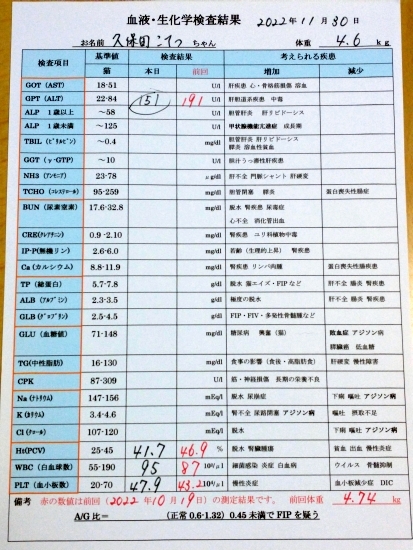 血液・生化学検査結果 2022年11月30日
お名前 久保田こてつ ちゃん 体重 4.6 kg
検査項目 基準値 猫 検査結果 本日 前回 考えられる疾患 増加 減少
GOT (AST) 18-51 U/l 肝疾患 心・骨格筋損傷 溶血
GPT (ALT) 22-84 151 191 U/l 肝胆道系疾患 中毒
ALP 1歳以上 ~58 U/l 胆管肝炎 肝リピドーシス
ALP 1歳未満 ~125 U/l 甲状腺機能亢進症 成長期
TBIL (ビリルビン) ~0.4 mg/dl 胆管肝炎 肝リピドーシス
膵炎 溶血性貧血
GGT (γ-GTP) ~10 U/l 胆汁うっ滞性肝疾患
NH3 (アンモニア) 23-78 μg/dl 肝不全 門脈シャント 肝硬変
TCHO (コレステロール) 95-259 mg/dl 胆管閉塞 膵炎 蛋白喪失性腸症
BUN (尿素窒素) 17.6-32.8 mg/dl 脱水 腎疾患 尿毒症
心不全 消化管出血
CRE(クレアチニン) 0.9-2.10 mg/dl 腎疾患 ユリ科植物中毒
IP-P(無機リン) 2.6-6.0 mg/dl 若齢(生理的上昇) 腎疾患
Ca (カルシウム) 8.8-11.9 mg/dl 腎疾患 リンパ肉腫 蛋白喪失性腸疾患
TP (総蛋白) 5.7-7.8 g/dl 脱水 猫エイズ・FIPなど 肝不全 腸炎 腎疾患
ALB (アルブミン) 2.3-3.5 g/dl 極度の脱水 肝不全 腸炎 腎疾患
GLB (グロブリン) 2.5-4.5 g/dl FIP・FIV・多発性骨髄腫など
GLU (血糖値) 71-148 mg/dl 糖尿病 興奮(猫) 敗血症 アジソン病
膵臓癌 低血糖
TG(中性脂肪) 16-130 mg/dl 食事の影響(食後・高脂肪食) 肝硬変 慢性腸症
CPK 87-309 U/l 筋・神経損傷 長期の栄養不良
Na (ナトリウム) 147-156 mEq/l 脱水 尿崩症 下痢 嘔吐 アジソン病
K (カリウム) 3.4-4.6 mEq/l 腎不全 尿路閉塞 アジソン病 嘔吐 摂取不足
Cl (クロール) 107-120 mEq/l 脱水 下痢 嘔吐 アジソン病
Ht(PCV) 25-45 41.7 46.9 % 脱水 腎臓腫瘍 貧血 出血 慢性炎症
WBC (白血球数) 55-190 95 87 10²/μl 細菌感染 炎症 白血病 ウイルス 骨髄抑制
PLT (血小板数) 20-70 47.9 43.2 10⁴/μl 慢性炎症 血小板減少症 DIC
備考 赤の数値は前回(2022年10月19日)の測定結果です。 前回体重 4.74 kg
A/G比= (正常0.6-1.32) 0.45未満でFIPを疑う